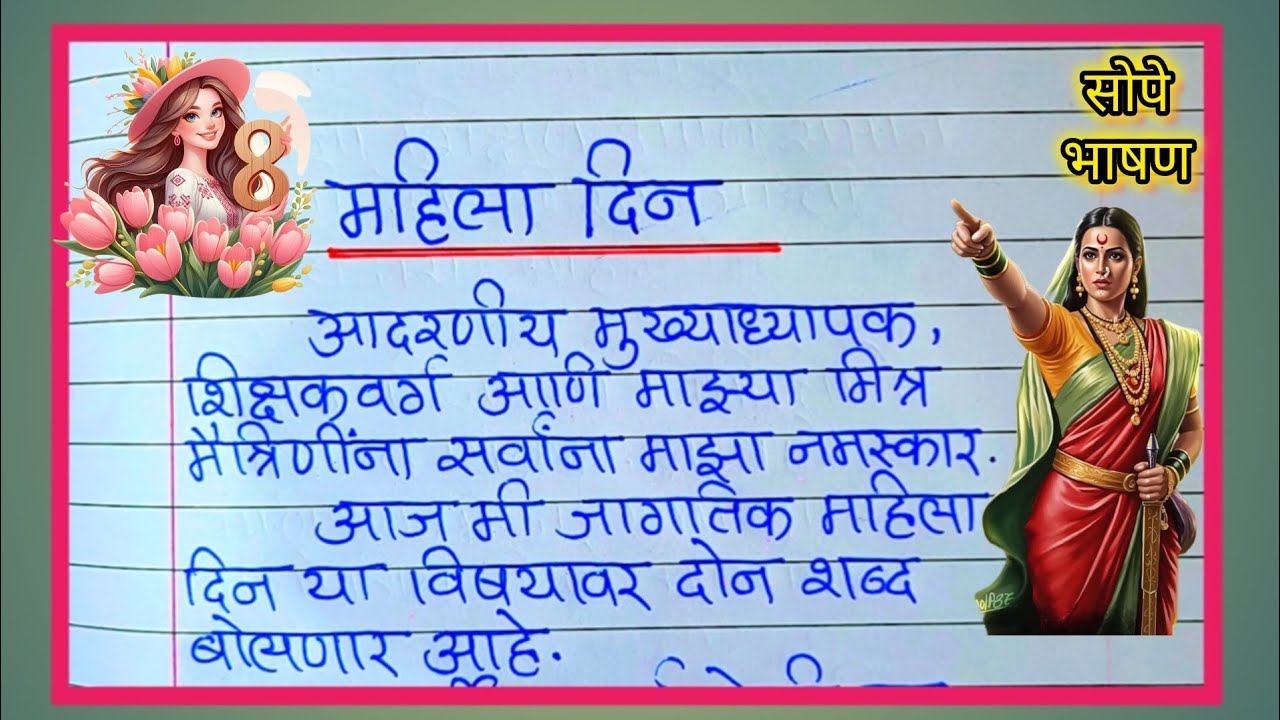 सोपे
भाषण
8
महिला दिन
आदरणीय मुख्याध्यापक,
शिक्षकवर्ग आणि माझ्या मित्र
मैत्रिणींना सर्वांना माझा नमस्कार.
आज मी जागतिक महिला
दिन या विषयावर दोन शब्द
बोलणार आहे.